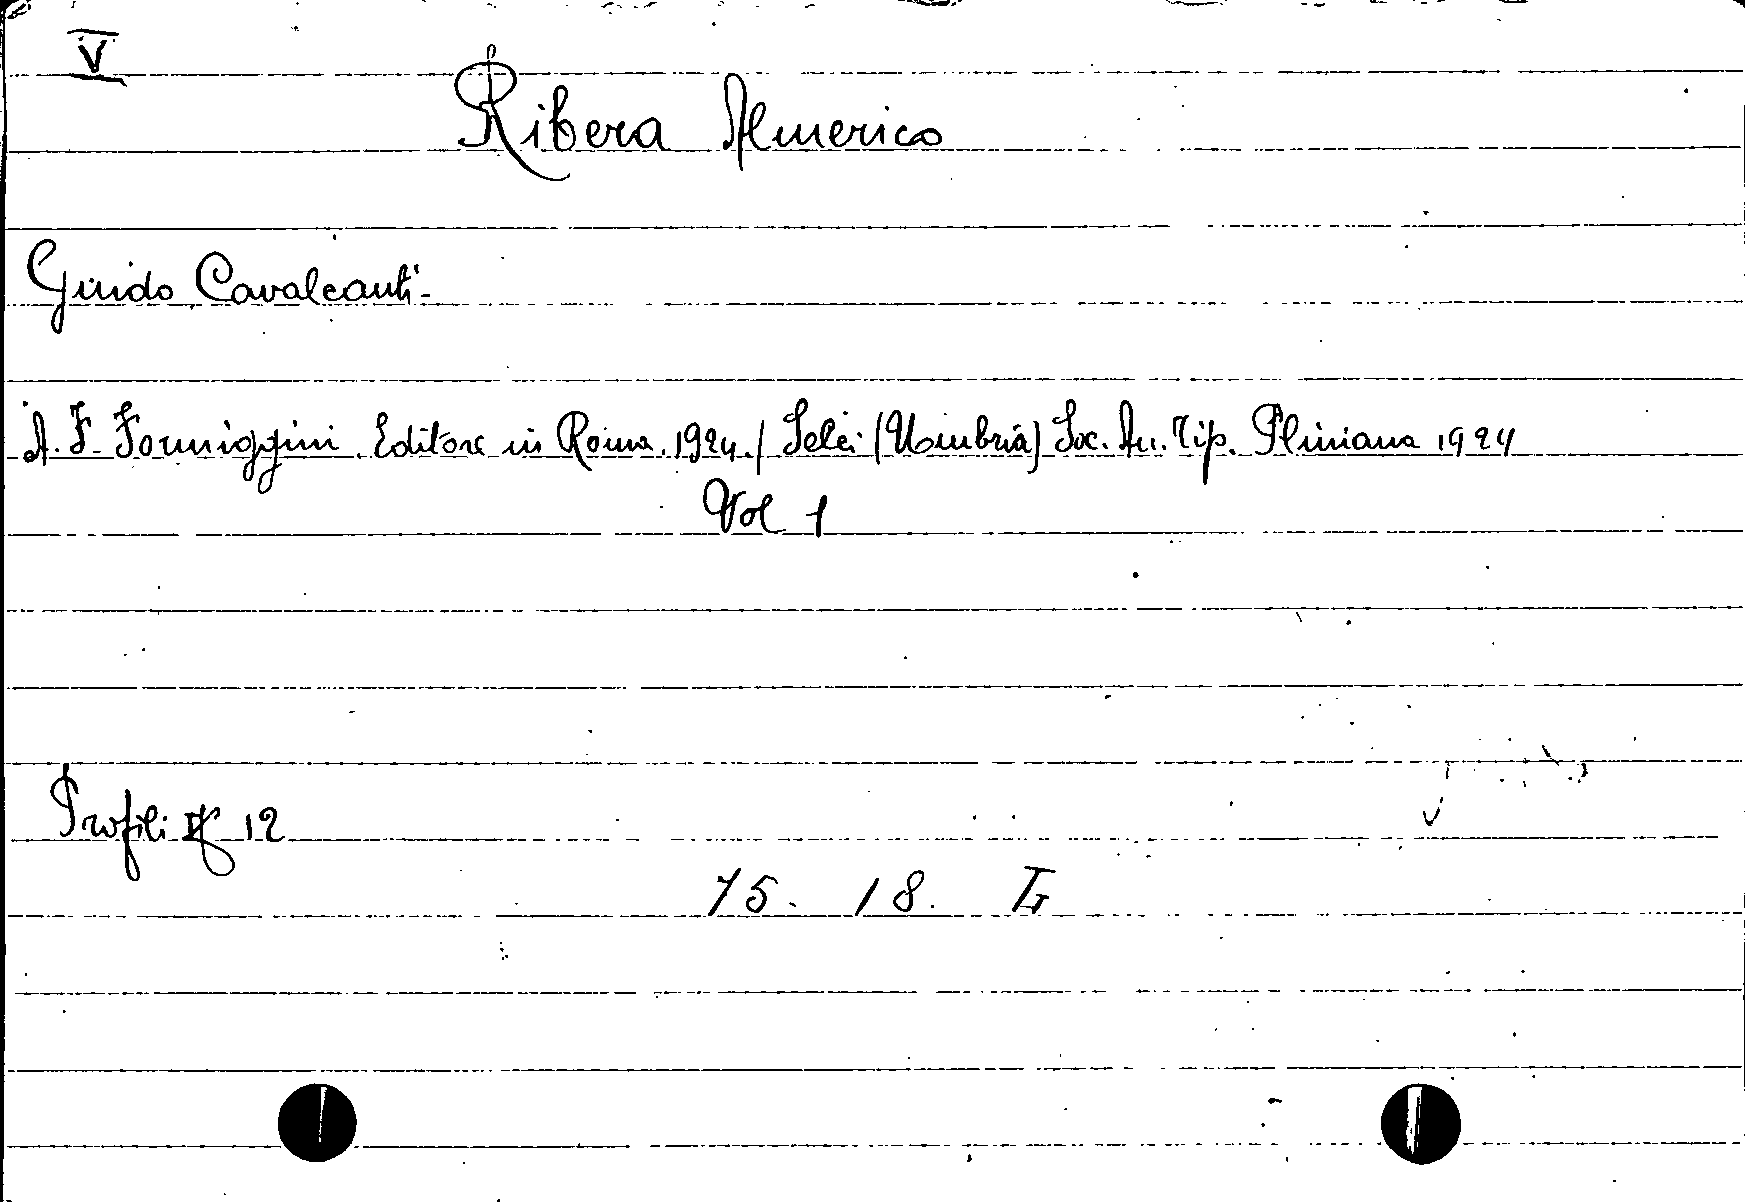 V
Ribera Almerico
Guido Cavalcanti-
A. F. Formiggini Editore in Roma. 1924./ Selci (Umbria) Soc. An. Tip. Pliniana 1924
Vol 1
Profili 12
75. 18.